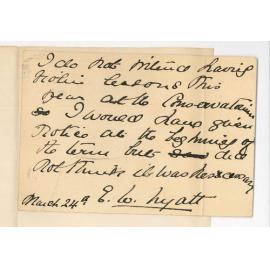 I do not intend having
violin lessons this
year at the Conservatoire
so I would have given
notice at the beginning of
the term but did
not think it was necessary
March 24th E. W. Hyatt